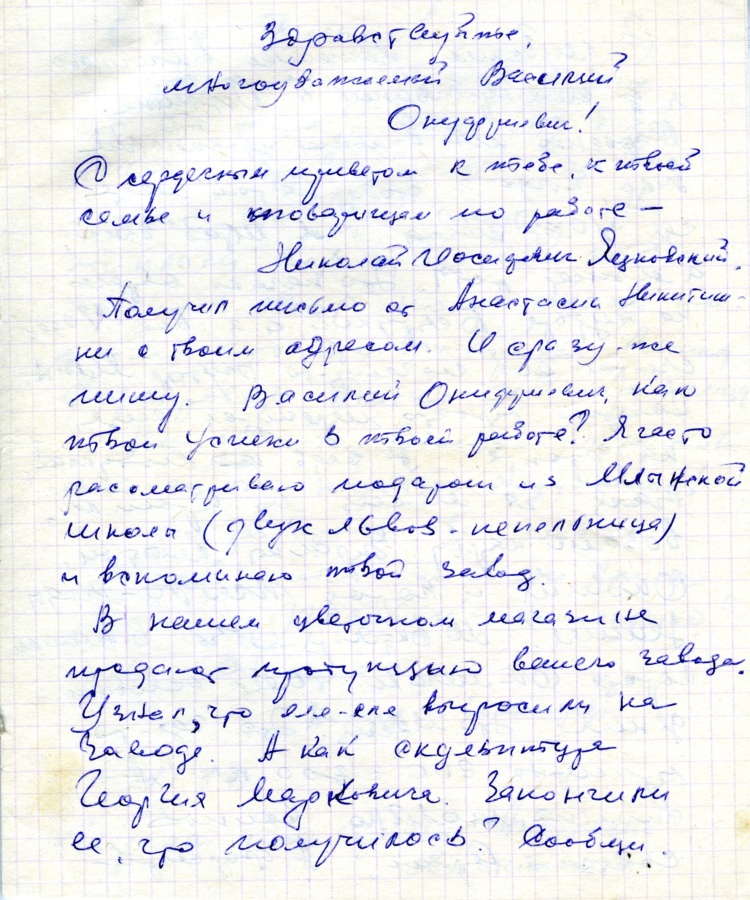 Здравствуйте,
многоуважаемый Василий
Онуфриевич!
С сердечным приветом к тебе, к твоей
семье и товарищам по работе —
Николай Иосифович Яцковский.
Получил письмо от Анастасии Никитич-
ни с твоим адресом. И сразу-же
пишу. Василий Онуфриевич, как
твои успехи в твоей работе? Я часто
рассматриваю подарок из Млынской
школы (двух львов - пепельница)
и вспоминаю твой завод.
В нашем цветочном магазине
продают продукцию вашего завода.
Узнал, что еле-еле выпросили на
заводе. А как скульптура
Георгия Марковича. Закончили
ее, что получилось? Сообщи.